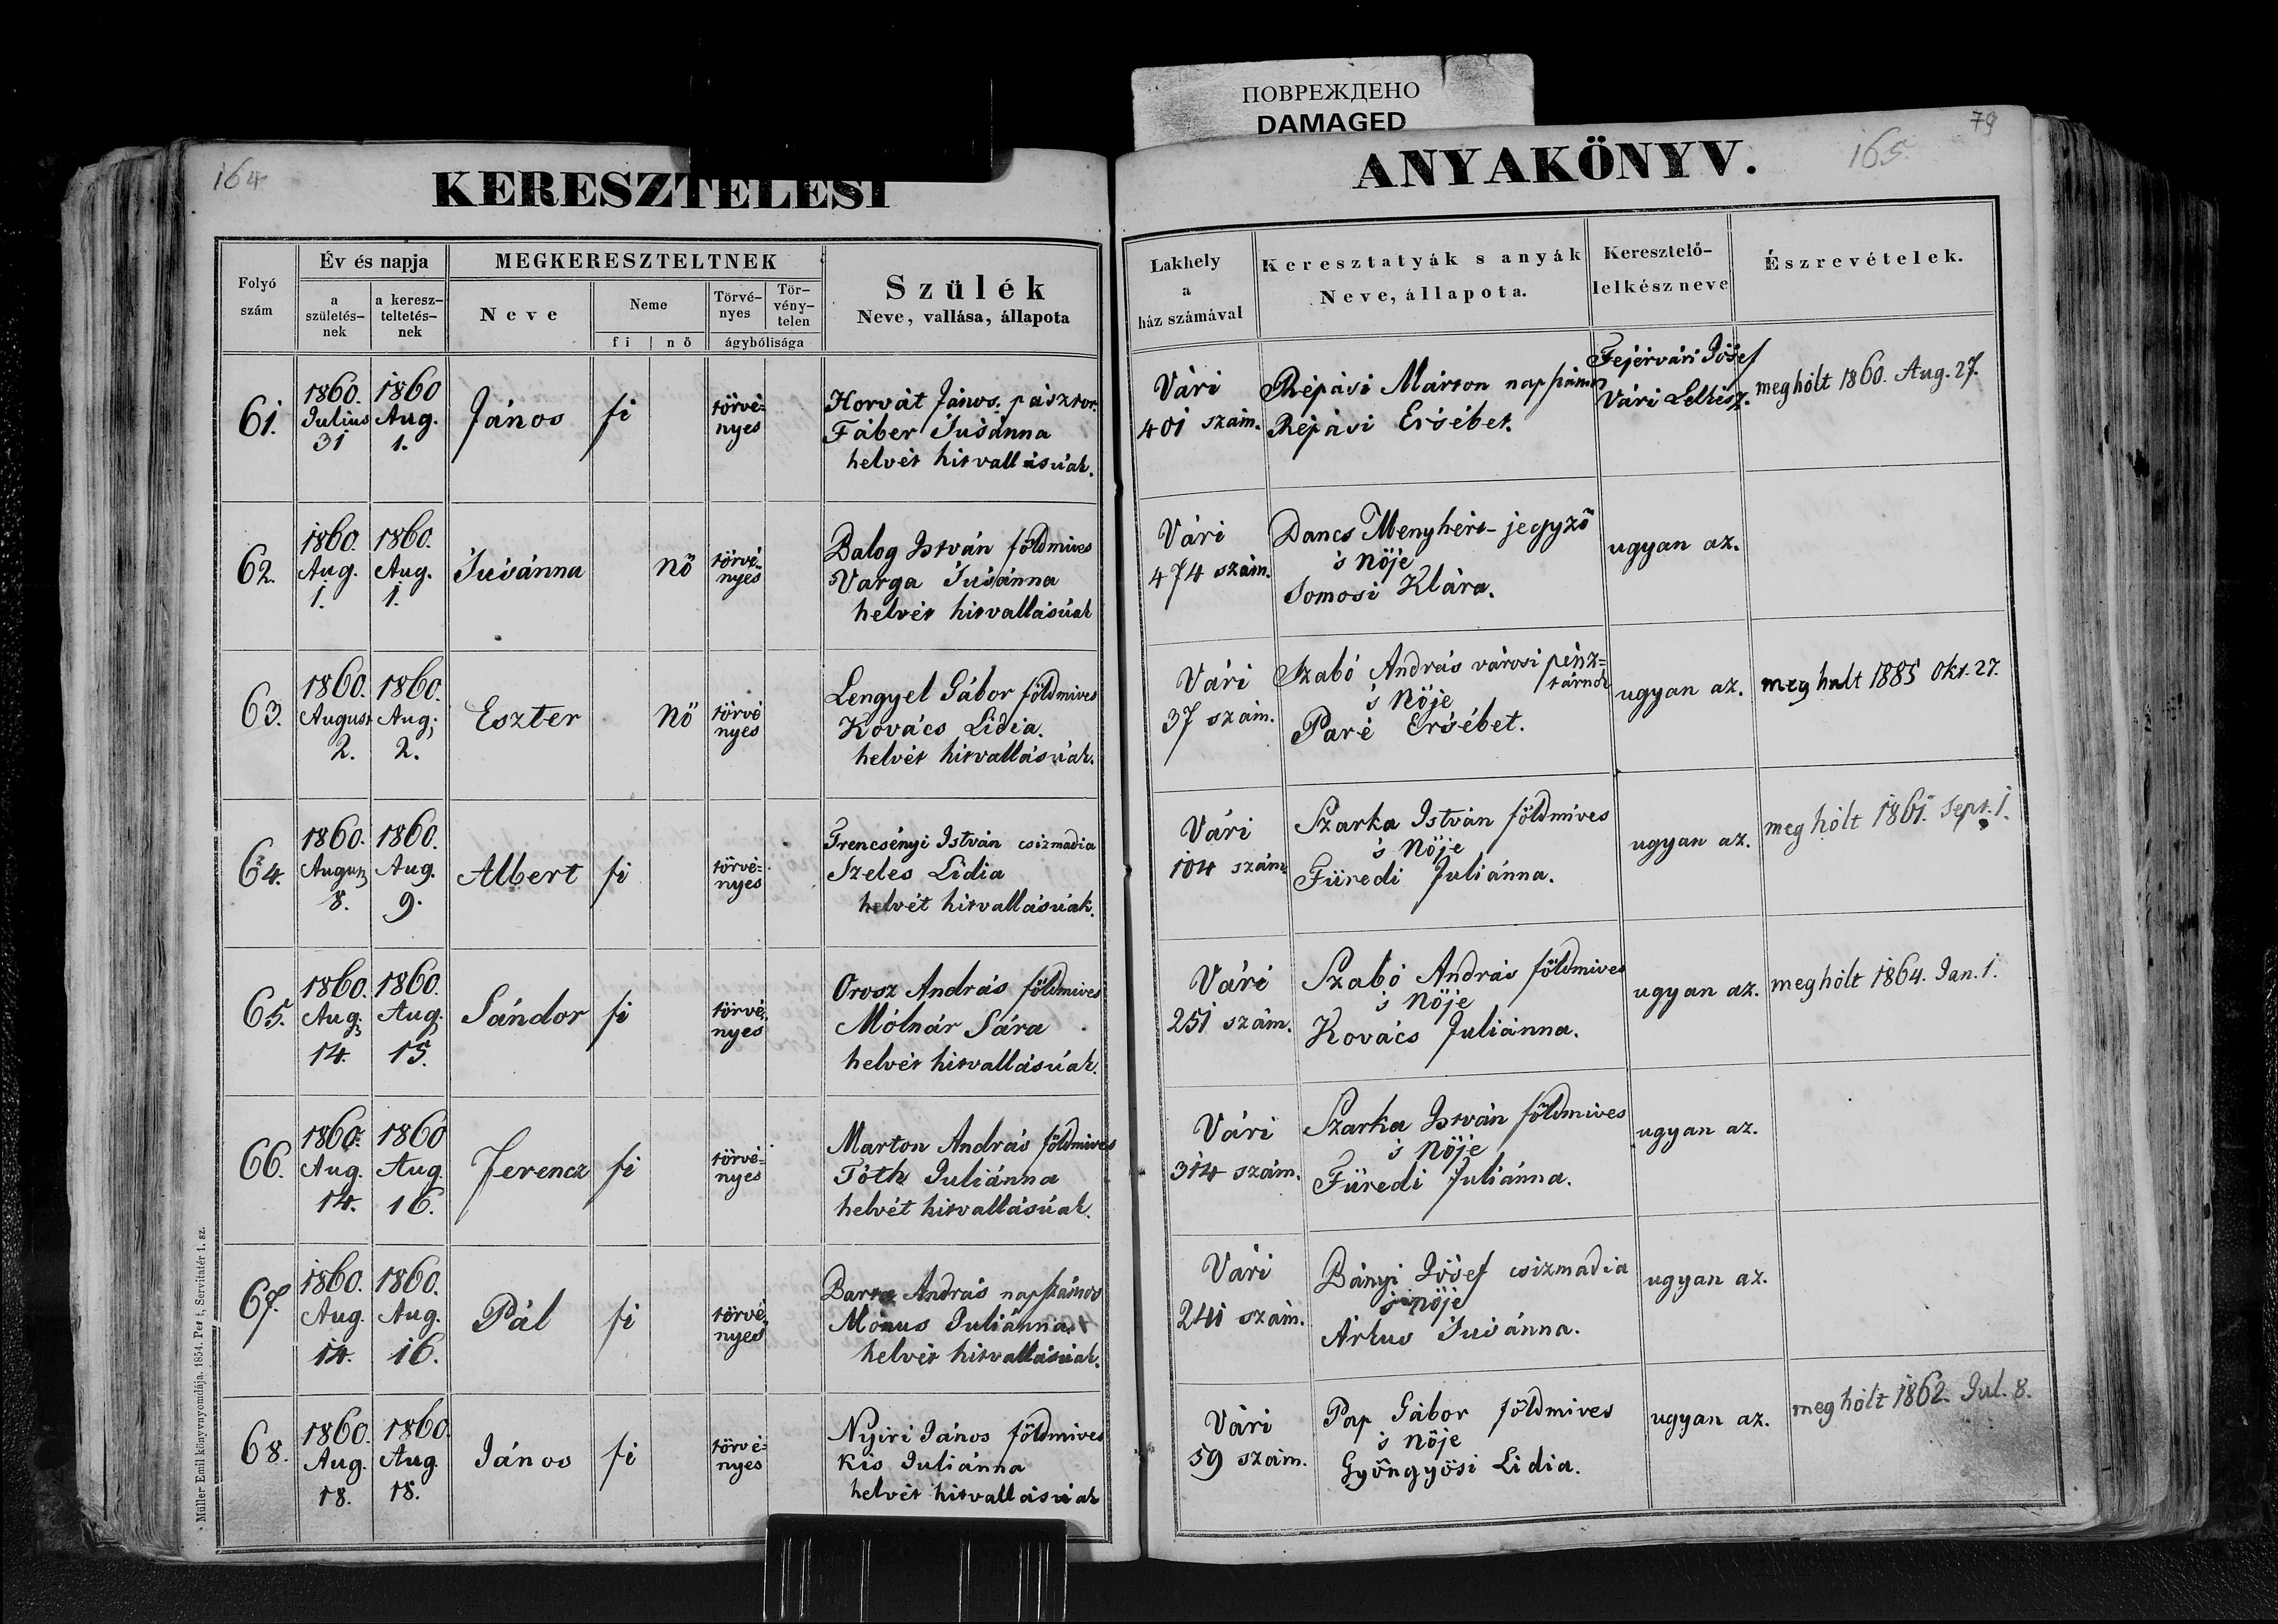 ПОВРЕЖДЕНО
DAMAGED
164
KERESZTELESI
Folyó szám
Év és napja
a születés-nek
a keresz-teltetés-nek
MEGKERESZTELTNEK
Neve
Neme
fi
nő
Törvé-nyes
Tör-vény-telen
ágybólisága
Szülék
Neve, vallása, állapota
61.
1860. Julius 31
1860 Aug. 1.
János
fi
törvé-
nyes
Horvát János, pásztor.
Fáber Susánna
helvét hitvallásúak.
62.
1860. Aug. 1.
1860. Aug. 1.
Susánna
nő
törvé-
nyes
Balog István földmives
Varga Susánna
helvét hitvallásúak
63.
1860. August 2.
1860. Aug; 2.
Eszter
Nő
törvé
nyes
Lengyel Gábor földmives
Kovács Lidia.
helvét hitvallásúak.
64.
1860. August 8.
1860. Aug. 9.
Albert
fi
törvé-
nyes
Trencsényi István csizmadia
Szeles Lidia
helvét hitvallásúak.
65.
1860. Aug. 14.
1860. Aug. 15.
Sándor
fi
törvé-
nyes
Orosz András földmives
Mólnár Sára
helvét hitvallásúak.
66.
1860. Aug. 14.
1860 Aug. 16.
Ferencz
fi
törvé=
nyes
Marton András földmives
Tóth Juliánna
helvét hitvallásúak.
67.
1860. Aug. 14.
1860. Aug. 16.
Pál
fi
törvé-
nyes
András napszámos
Mónus Juliánna.
helvét hitvallásúak.
68.
1860. Aug. 18.
1860. Aug. 18.
János
fi
törvé-
nyes
Nyiri János földmives
Kis Juliánna
helvét hitvallásúak
Müller Emil könyvnyomdája. 1854. Pest, Servitatér 1. sz.
79
165.
ANYAKÖNYV.
Lakhely
a
ház számával
Keresztatyák s anyák
Neve, állapota.
Keresztelő-
lelkész neve
Észrevételek.
Vári
401 szám.
Répási Márton napszámos
Répási Ersébet.
Fejérvári Jósef
Vári Lelkész.
meghólt 1860. Aug. 27.
Vári
474 szám.
Dancs Menyhért jegyző
s Nöje
Somosi Klára.
ugyan az.
Vári
37 szám.
Szabó András városi pénz=
tárnok
s Nöje
Paré Ersébet.
ugyan az.
meghalt 1885 Okt. 27.
Vári
104 szám
Szarka István földmives
s Nöje
Füredi Juliánna.
ugyan az.
meg hólt 1861. Sept. 1.
Vári
251 szám.
Szabó András földmives
s Nöje
Kovács Juliánna.
ugyan az.
meghólt 1864. Jan. 1.
Vári
314 szám.
Szarka István földmives
s Nöje
Füredi Juliánna.
ugyan az.
Vári
241 szám.
Bányi Jósef csizmadia
s nöje
Árkus Susánna.
ugyan az.
Vári
59 szám.
Pap Gábor földmives
s Nöje
Gyöngyösi Lidia.
ugyan az.
meg hólt 1862. Jul. 8.